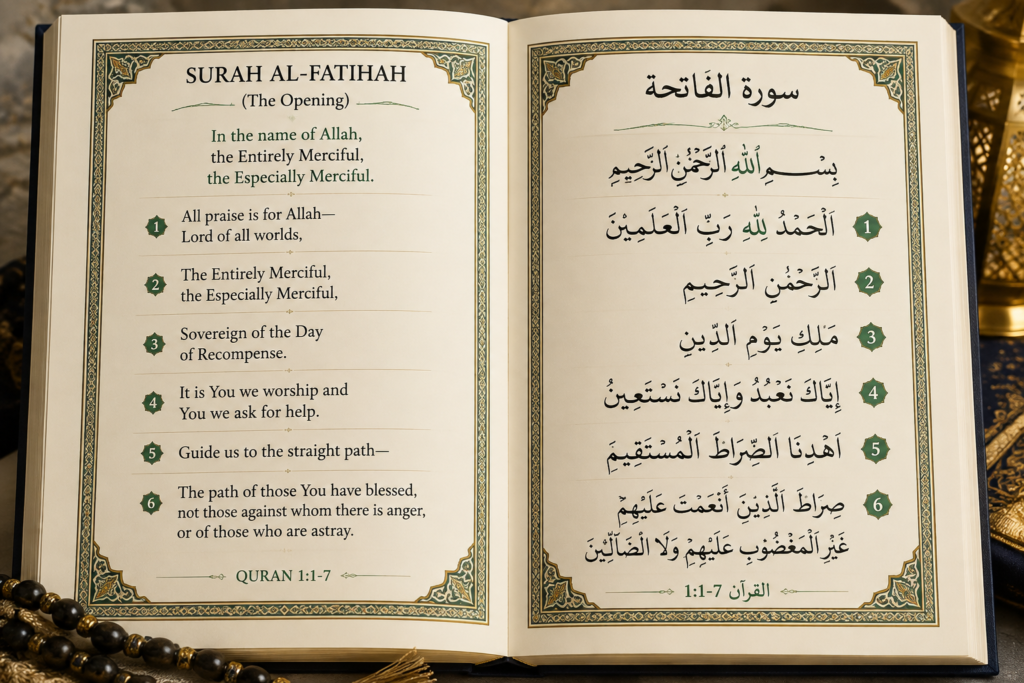 SURAH AL-FATIHAH
(The Opening)
In the name of Allah,
the Entirely Merciful,
the Especially Merciful.
1 All praise is for Allah—
Lord of all worlds,
2 The Entirely Merciful,
the Especially Merciful,
3 Sovereign of the Day
of Recompense.
4 It is You we worship and
You we ask for help.
5 Guide us to the straight path—
6 The path of those You have blessed,
not those against whom there is anger,
or of those who are astray.
QURAN 1:1-7
سورة الفَاتحة
بِسْـــمِ ٱللّٰهِ ٱلرَّحْمٰنِ ٱلرَّحِيمِ
اَلْحَمْدُ لِلّٰهِ رَبِّ اَلْعَلَمِيْنَ 1
اَلرَّحْمٰنِ اَلرَّحِيمِ 2
مَلِكِ يَوْمِ اَلدِّينِ 3
إِيَّاكَ نَعْبُدُ وَإِيَّاكَ نَسْتَعِينُ 4
اَهْدِنَا اَلصِّرَاطَ اَلْمُسْتَقِيمَ 5
صِرَاطَ اَلَّذِيْنَ أَنْعَمْتَ عَلَيْهِمْ 6
غَيْرِ اَلْمَغْضُوْبِ عَلَيْهِمْ وَلَا الضَآلِّيْنَ
القرآن 1:1-7